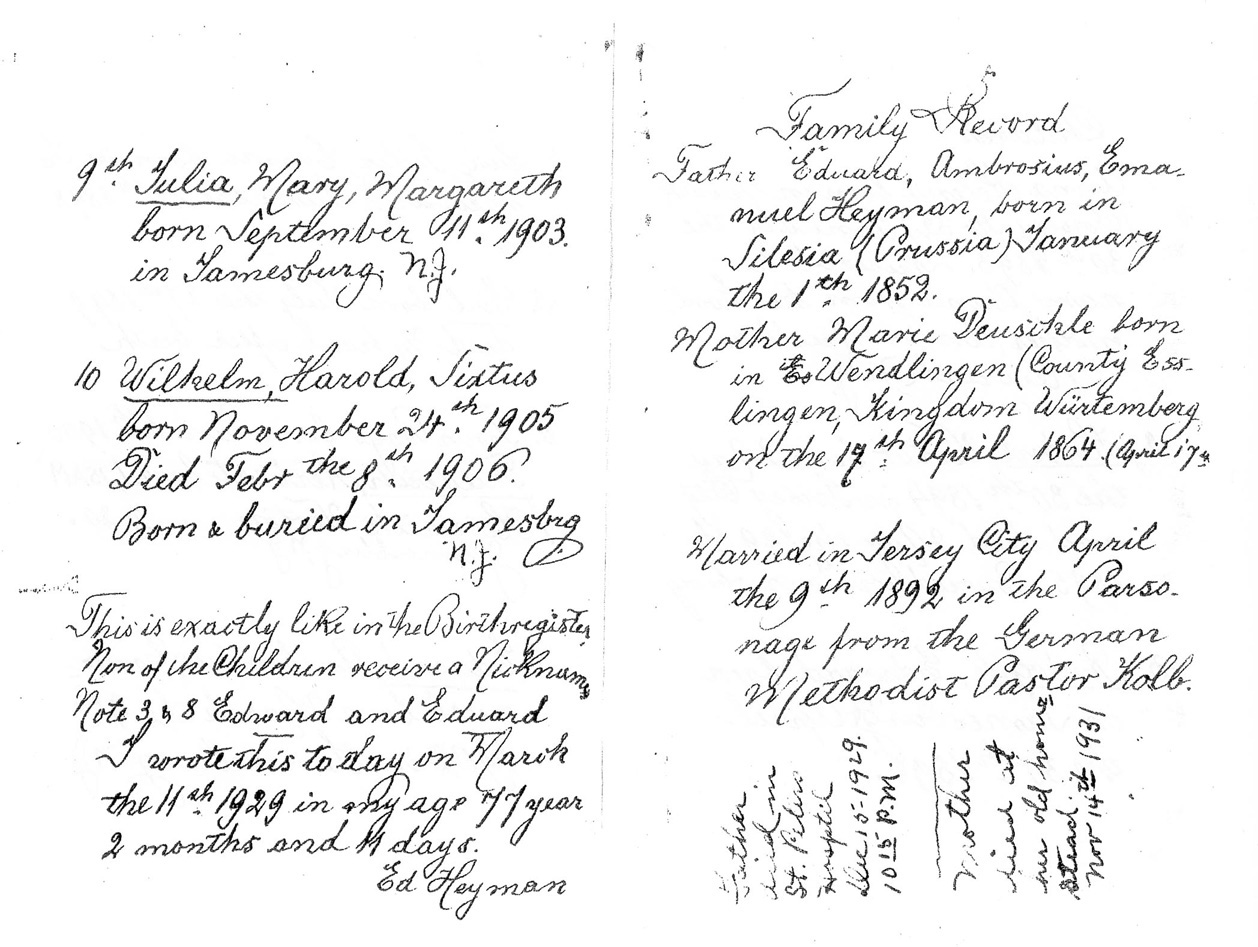 9th. Julia, Mary, Margareth
born September 11th. 1903.
in Jamesburg. N.J.
10 Wilhelm, Harold, Sixtus
born November 24th. 1905
Died Febr the 8th. 1906.
Born & buried in Jamesbrg
N.J.
This is exactly like in the Birthregister
Non of the Children receive a Nickname
Note 3 & 8 Edward and Eduard
I wrote this to day on March
the 11th. 1929 in my age 77 year
2 months and 11 days.
Ed Heyman
5
Family Record
Father Eduard, Ambrosius, Ema-
nuel Heyman, born in
Silesia (Prussia) January
the 1th. 1852.
Mother Marie Deuschle born
in Wendlingen (County Ess-
lingen, Kingdom Würtemberg
on the 17th. April 1864. (April 17th
Married in Jersey City April
the 9th. 1892 in the Parso-
nage from the German
Methodist Pastor Kolb.
Father
died in
St. Peters
Hospital
Dec 15-1929.
10 15 P.M.
Mother
died at
her old home
stead.
Nov 14th 1931